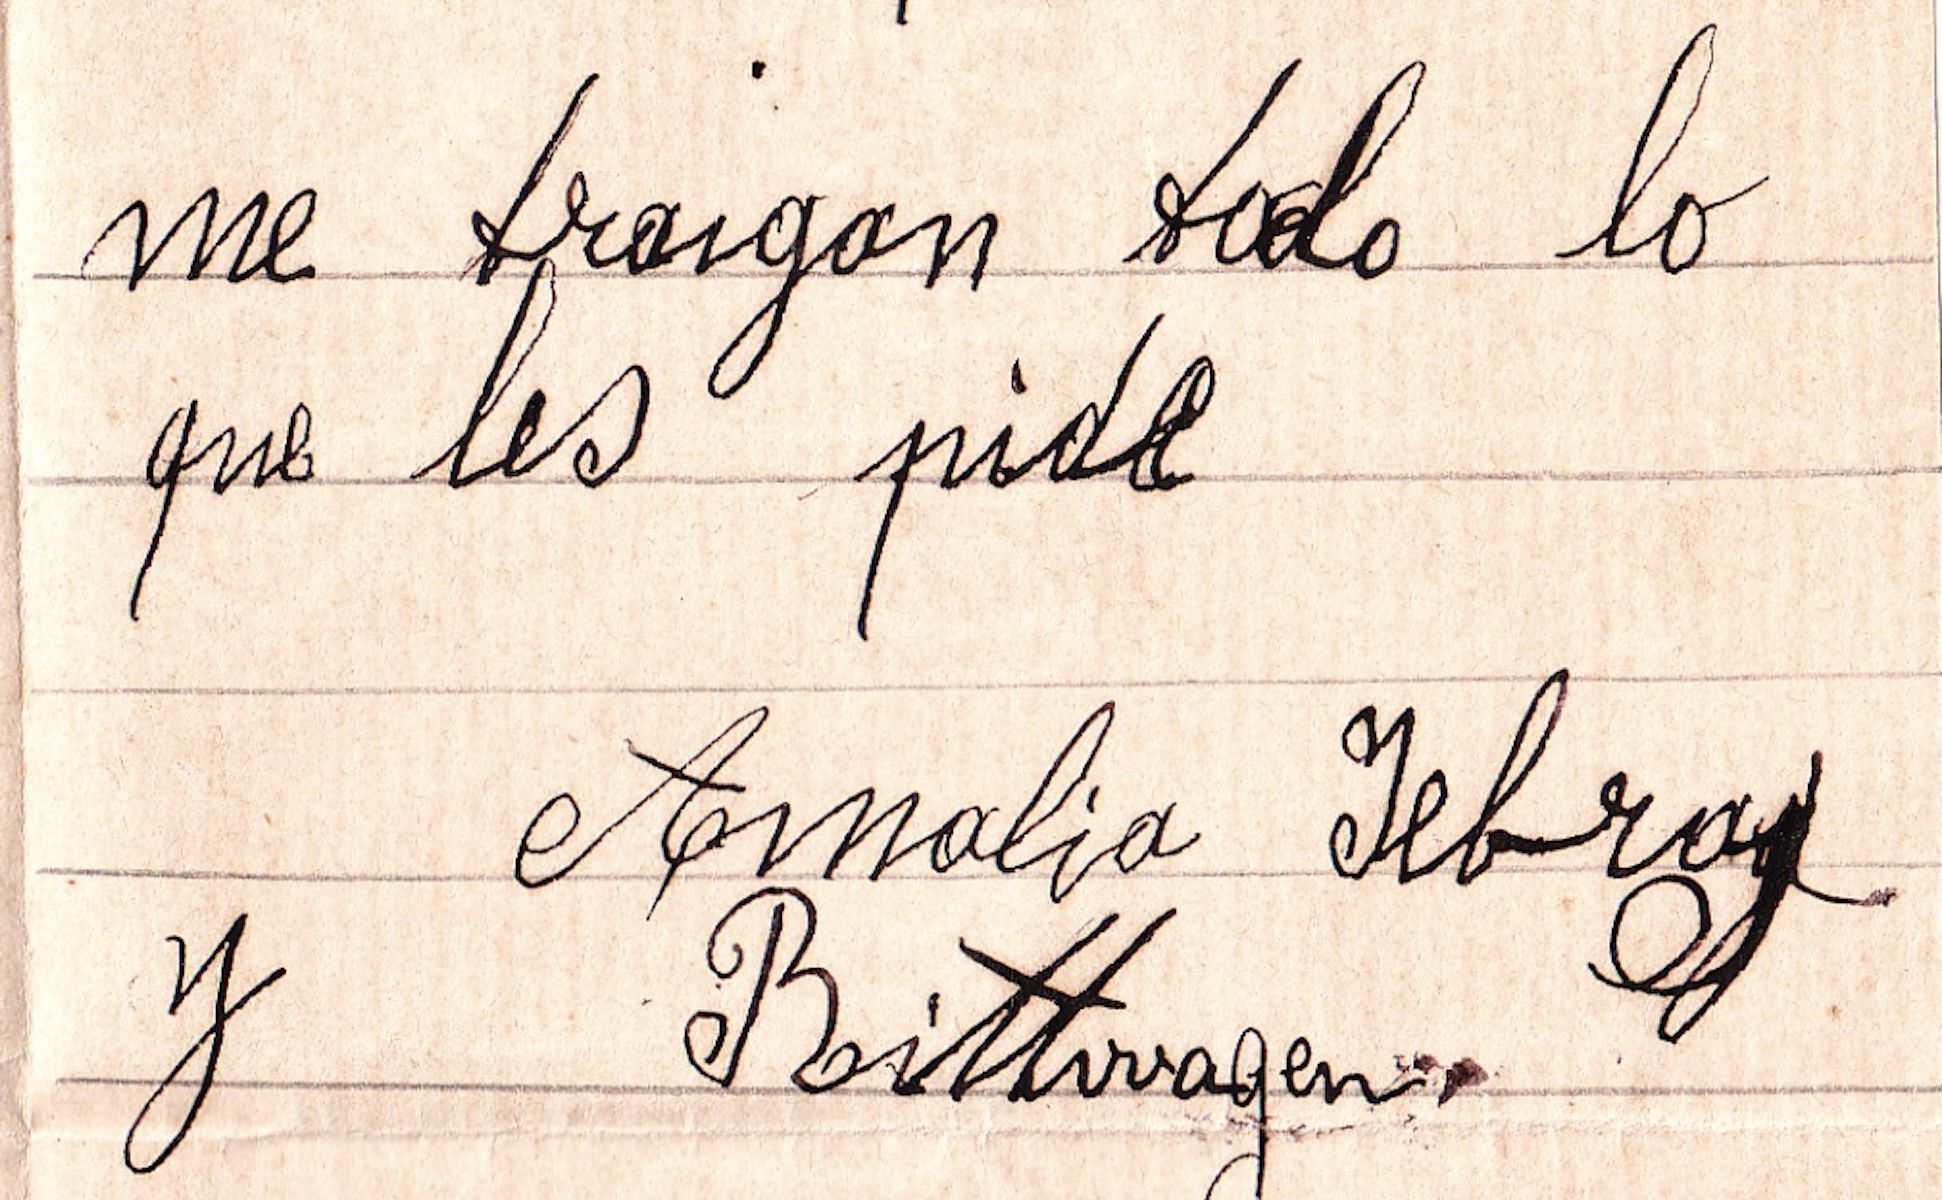 me traigan todo lo
que les pide
Amalia Yebra
y Rittwagen.